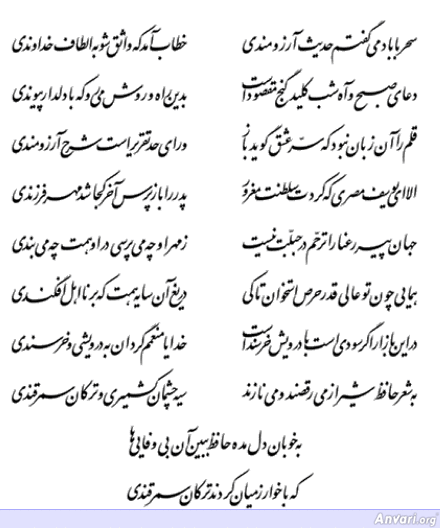 سحر با باد می گفتم حدیث آرزومندی خطاب آمد که واثق شو به الطاف خداوندی
دعای صبح و آه شب کلید گنج مقصود است بدین راه و روش می رو که با دلدار پیوندی
قلم را آن زبان نبود که سرّ عشق گوید باز ورای حد تقریر است شرح آرزومندی
الا ای یوسف مصری که کردت سلطنت مغرور پدر را باز پرس آخر کجا شد مهر فرزندی
جهان پیر رعنا را ترحّم در جبلّت نیست ز مهر او چه می پرسی در او همت چه می بندی
همایی چون تو عالی قدر حرص استخوان تا کی دریغ آن سایه همت که بر نااهل افکندی
در این بازار اگر سودی است با درویش خرسند است خدایا منعمم گردان به درویشی و خرسندی
به شعر حافظ شیراز می رقصند و می نازند سیه چشمان کشمیری و ترکان سمرقندی
به خوبان دل مده حافظ ببین آن بی وفایی ها
که با خوارزمیان کردند ترکان سمرقندی
Anvari.org